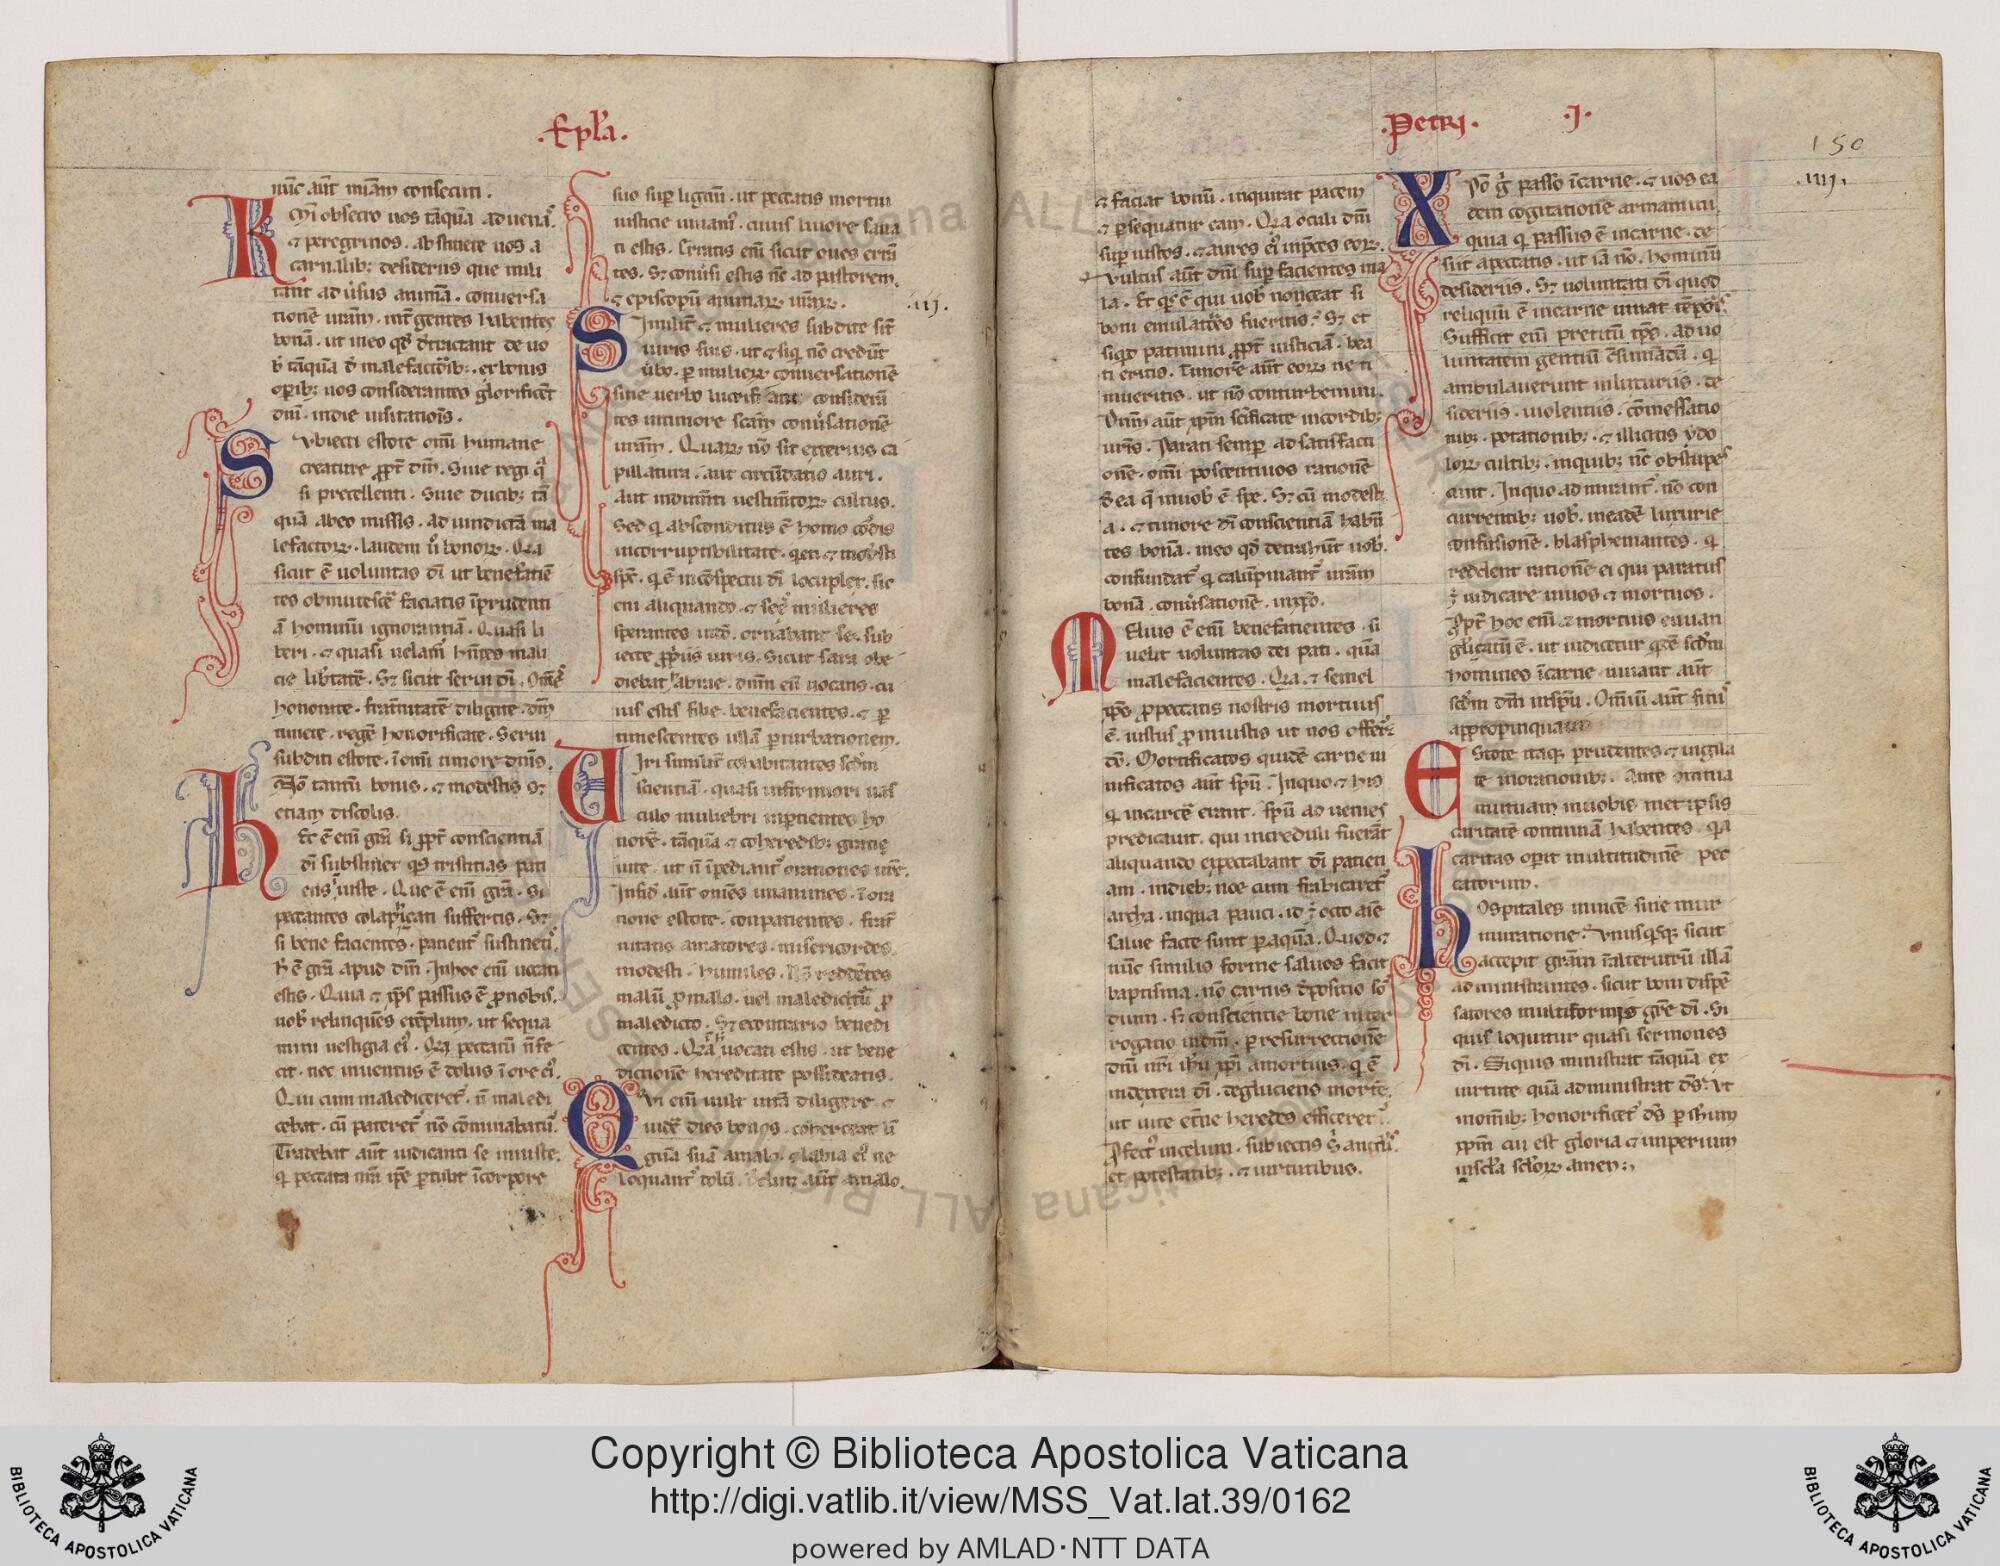 ·Epl'a·
nũc aũt miam consecuti.
Kmi obsecro uos tãquã aduenas
⁊ peregrinos. abstinete uos a
carnalib; desideriis que mili
tant aduersus animã. conuersa
tionẽ urãm. int gentes habentes
bonã. ut ineo qd detractant de uo
b tãquã d malefactorib;. exbonis
opib; uos considerantes glorificẽt
dm. indie uisitatiois.
Subiecti estote omi humane
creature ppt dm. Siue regi q
si precellenti. Siue ducib; tã
quã abeo missis. aduindictã ma
lefactoꝝ. laudem u bonoꝝ. Qia
sicut ẽ uoluntas di ut benefatiẽ
tes obmutescẽ faciatis iprudenti
ã hominũ ignorantiã. Quasi li
beri. ⁊ quasi uelam hntes mali
cie libtatẽ. Sz sicut serui di. Oms
honorate. frat̃nitatẽ diligite. dm
timete. regẽ honorificate. Serui
subditi estote. i omi timore dnis.
Nõ tantũ bonis. ⁊ modestis sz
etiam discolis.
Hec ẽ eni gra si ppt conscientiã
di sustinet qs tristitias pati
ens iuste. Que ẽ eni gra. Si
peccantes colaphicati suffertis. Sz
si bene facientes. patient sustinetis.
h ẽ gra apud dm. Inhoc eni uocati
estis. Quia ⁊ xps passus ẽ pnobis.
uob relinquẽs exẽplum. ut sequa
mini uestigia ei. Qui peccatũ ñ fe
cit. nec inuentus ẽ dolus i ore ei.
Qui cum malediceret. ñ maledi
cebat. cũ pateret nõ cõminabatur.
Tradebat aũt iudicanti se iniuste.
q peccata nra ipe ptulit i corpore
suo sup lignũ. ut peccatis mortui
iusticie uiuam. cuius liuore sana
ti estis. Eratis eni sicut oues errã
tes. Sz conuersi estis nc ad pastorem.
⁊ episcopũ animaꝝ uraꝝ.
.iij.
Similit ⁊ mulieres subdite sĩt
uiris suis. ut ⁊ siq nõ credũt
ubo. p mulieꝝ conuersationẽ
sine uerbo lucrifiant considerã
tes intimore scam conuersationẽ
urãm. Quaꝝ nõ sit exterius ca
pillatura. aut circũdatio auri.
aut indumti uestimtoꝝ cultus.
Sed q absconditus ẽ homo cordis
incorruptibilitate. qeti ⁊ modesti
spc. q ẽ incõspectu di locuples. sic
eni aliquando. ⁊ sce mulieres
sperantes indo. ornabant se. sub
iecte ppiis uiris. Sicut sara obe
diebat abrae. dnm eũ uocans. cu
ius estis filie. benefacientes. ⁊ n
timescentes ullã pturbationem.
Uiri similit cohabitantes scdm
scientiã. quasi infirmiori uas
culo muliebri inptientes ho
norẽ. tãquã ⁊ coheredib; gratie
uite. ut ñ ipediant orationes ure.
Infide aũt omes unanimes. i ora
tione estote. conpatientes. frat
nitatis amatores. misericordes.
modesti. humiles. Nõ reddẽtes
malũ pmalo. uel maledictũ p
maledicto. Sz econtrario benedi
centes. Qia ihoc uocati estis. ut bene
dictionẽ hereditate possideatis.
Qui eni uult uitã diligere. ⁊
uidẽ dies bonos. coherceat lĩ
guã suã amalo. ⁊ labia ei ne
loquant dolũ. Declinet aũt amalo.
·Petri· ·J·
150
⁊ faciat bonũ. inquirat pacem
⁊ psequatur eam. Qia oculi dni
sup iustos. ⁊ aures ei inpces eoꝝ.
Vultus aũt dni sup facientes ma
la. Et qs ẽ qui uob noceat si
boni emulatores fueritis? Sz et
siqd patimini ppt iusticiã. bea
ti eritis. Timore aũt eoꝝ ne ti
mueritis. ut nõ conturbemini.
Dnm aũt xpm scificate incordib;
uris. Parati semp ad satisfacti
onẽ. omi poscentiuos rationẽ
de ea q inuob ẽ spe. Sz cũ modesti
a. ⁊ timore di conscientiã habẽ
tes bonã. ineo qd detrahũt uob.
confundat q calũpniant urãm
bonã. conuersationẽ. inxpo.
Melius ẽ eni benefatientes. si
uelit uoluntas dei pati. quã
malefacientes. Qia. ⁊ semel
xps p peccatis nostris mortuus
ẽ. iustus p iniustis ut nos offerret
do. Mortificatos quidẽ carne ui
uificatos aũt spu. Inquo ⁊ his
q incarcẽ erant. spu ad uenies
predicauit. qui increduli fuerãt
aliquando expectabant di patienti
am. indieb; noe cum fabricaret
archa. inqua pauci. id ẽ octo aie
salue facte sunt paquã. Quod ⁊
nũc similis forme saluos facit
baptisma. nõ carnis depositio sor
dium. sz conscientie bone inter
rogatio indm. p resurrectionẽ
dni nri ihu xpi amortuis. q ẽ
indextera di. degluciens mortẽ.
ut uite etne heredes efficeret.
Pfect incelum. subiectis s anglis
et potestatib;. ⁊ uirtutibus.
.iiij.
Xpo g passo icarne. ⁊ uos ea
dem cogitatione armamini
quia q passus ẽ incarne. de
siit apeccatis. ut iã nõ. hominũ
desideriis. Sz uoluntati di quod
reliquũ ẽ incarne uiuat tẽporis
Sufficit eni preteritũ tps. aduo
luntatem gentiũ csumãdã. q
ambulauerunt inluxuriis. de
sideriis. uiolentiis. cõmessatio
nib;. potationib;. ⁊ illicitis ydo
loꝝ cultib;. inquib; nc obstupes
cunt. Inquo admirant. nõ con
currentib; uob. ineadẽ luxurie
confusionẽ. blasphemantes. q
reddent rationẽ ei qui paratus
ẽ iudicare uiuos ⁊ mortuos.
Ppt hoc eni ⁊ mortuis euuan
glicatũ ẽ. ut iudicetur qdẽ scdm
homines icarne. uiuant aũt
scdm dm inspu. Omiũ aũt finis
appropinquauit
Estote itaq; prudentes ⁊ uigila
te inorationib;. Ante omnia
mutuam inuobis met ipsis
caritatẽ continuã habentes. qa
caritas opit multitudinẽ pec
catorum.
hospitales inuicẽ sine mur
muratione. Vnusqsq; sicut
accepit gram ialterutrũ illã
administrantes. sicut boni dispẽ
satores multiformis gre di. Si
quis loquitur quasi sermones
di. Siquis ministrat tãquã ex
uirtute quã administrat ds. Vt
inomib; honorificet ds p ihum
xpm cui est gloria ⁊ imperium
inscla scloꝝ amen:,
Copyright © Biblioteca Apostolica Vaticana
http://digi.vatlib.it/view/MSS_Vat.lat.39/0162
powered by AMLAD·NTT DATA
BIBLIOTECA APOSTOLICA VATICANA
BIBLIOTECA APOSTOLICA VATICANA